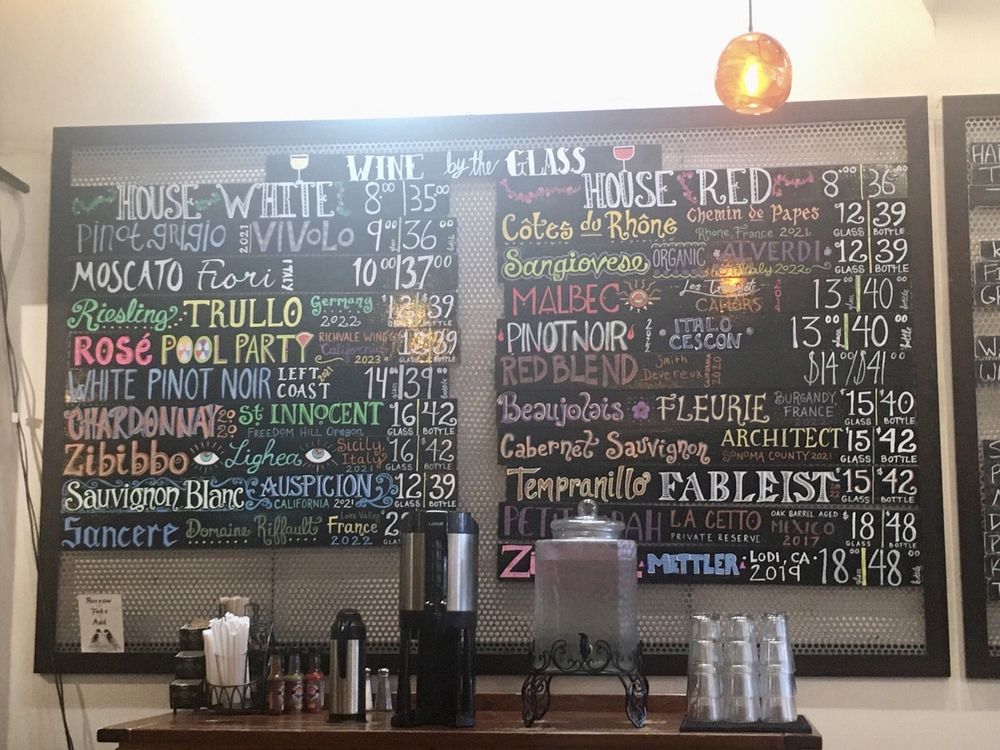 WINE by the GLASS
HOUSE WHITE 8⁰⁰ 35⁰⁰
Pinot grigio 2021 VIVOLO 9⁰⁰ glass 36⁰⁰ bottle
MOSCATO Fiori ITALY 10⁰⁰ 37⁰⁰
Riesling TRULLO Germany 2022 39 BOTTLE
ROSÉ POOL PARTY RICHVALE WINE California 2023 39 BOTTLE
WHITE PINOT NOIR LEFT COAST 2021 14⁰⁰ glass 39⁰⁰ bottle
CHARDONNAY 2020 St INNOCENT FREEDOM HILL Oregon 16 GLASS $42 BOTTLE
Zibibbo Lighea Sicily, Italy 2021 16 GLASS $42 BOTTLE
Sauvignon Blanc AUSPICION CALIFORNIA 2021 12 GLASS 39 BOTTLE
Sancere Domaine Riffault Loire Valley France 2022
HOUSE RED 8⁰⁰ 36⁰⁰
Côtes du Rhône Chemin de Papes Rhone, France 2021 12 GLASS 39 BOTTLE
Sangiovese ORGANIC ALVERDI Italy 2022 12 GLASS 39 BOTTLE
MALBEC Les CAHORS 13⁰⁰ glass 40⁰⁰ bottle
PINOT NOIR ITALO CESCON 13⁰⁰ glass 40⁰⁰ bottle
RED BLEND Smith Devereux CALIFORNIA 2020 $14⁰⁰/$41⁰⁰
Beaujolais FLEURIE BURGANDY, FRANCE 2022 $15 GLASS $40 BOTTLE
Cabernet Sauvignon ARCHITECT SONOMA COUNTY 2021 $15 GLASS $42 BOTTLE
Tempranillo FABLEIST $15 GLASS $42 BOTTLE
LA CETTO PRIVATE RESERVE OAK BARREL AGED MEXICO 2017 $18 GLASS $48 BOTTLE
METTLER LODI, CA 2019 18⁰⁰ glass 48⁰⁰ bottle
Borrow
Take
Add